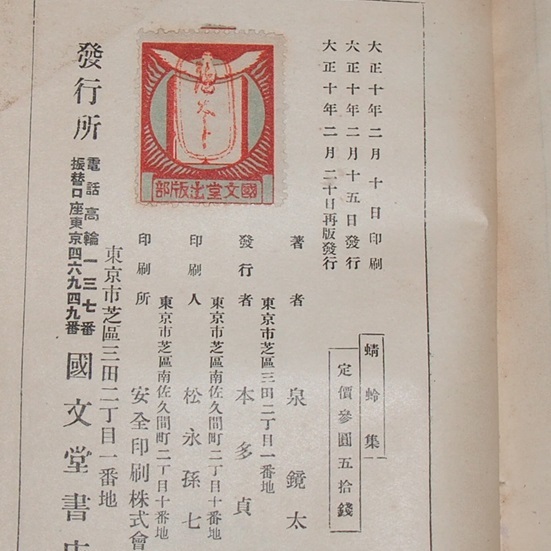 大正十年二月十日印刷
大正十年二月十五日發行
大正十年二月二十日再版發行
蜻蛉集
定價參圓五拾錢
著者 泉鏡太
東京市芝區三田二丁目一番地
發行者 本多貞
東京市芝區南佐久間町二丁目十番地
印刷人 松永孫七
東京市芝區南佐久間町二丁目十番地
印刷所 安全印刷株式會
國文堂出版部
東京市芝區三田二丁目一番地
發行所 國文堂書
電話高輪一三七番
振替口座東京四六九四九番